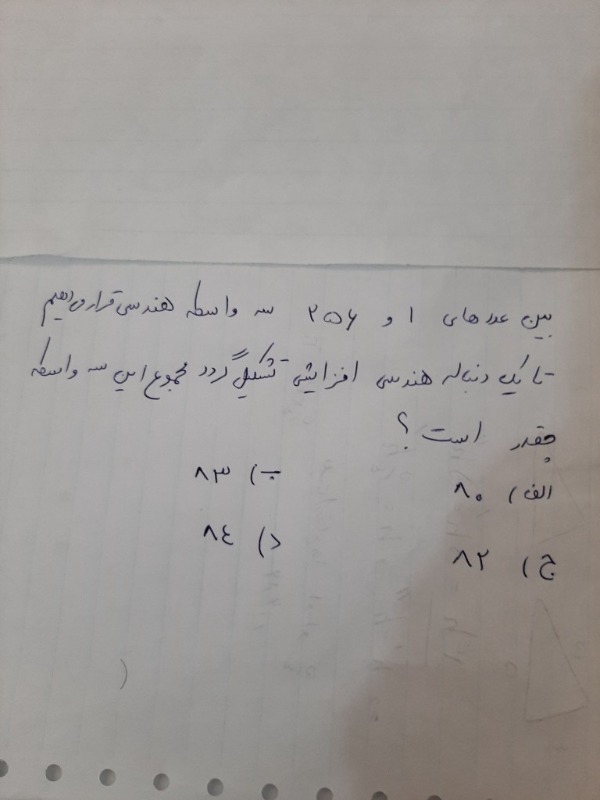 بین عددهای ۱ و ۲۵۶ سه واسطه هندسی قرار می‌دهیم
تا یک دنباله هندسی افزایشی تشکیل گردد مجموع این سه واسطه
چقدر است؟
الف) ۸۰ ب) ۸۳
ج) ۸۲ د) ۸٤